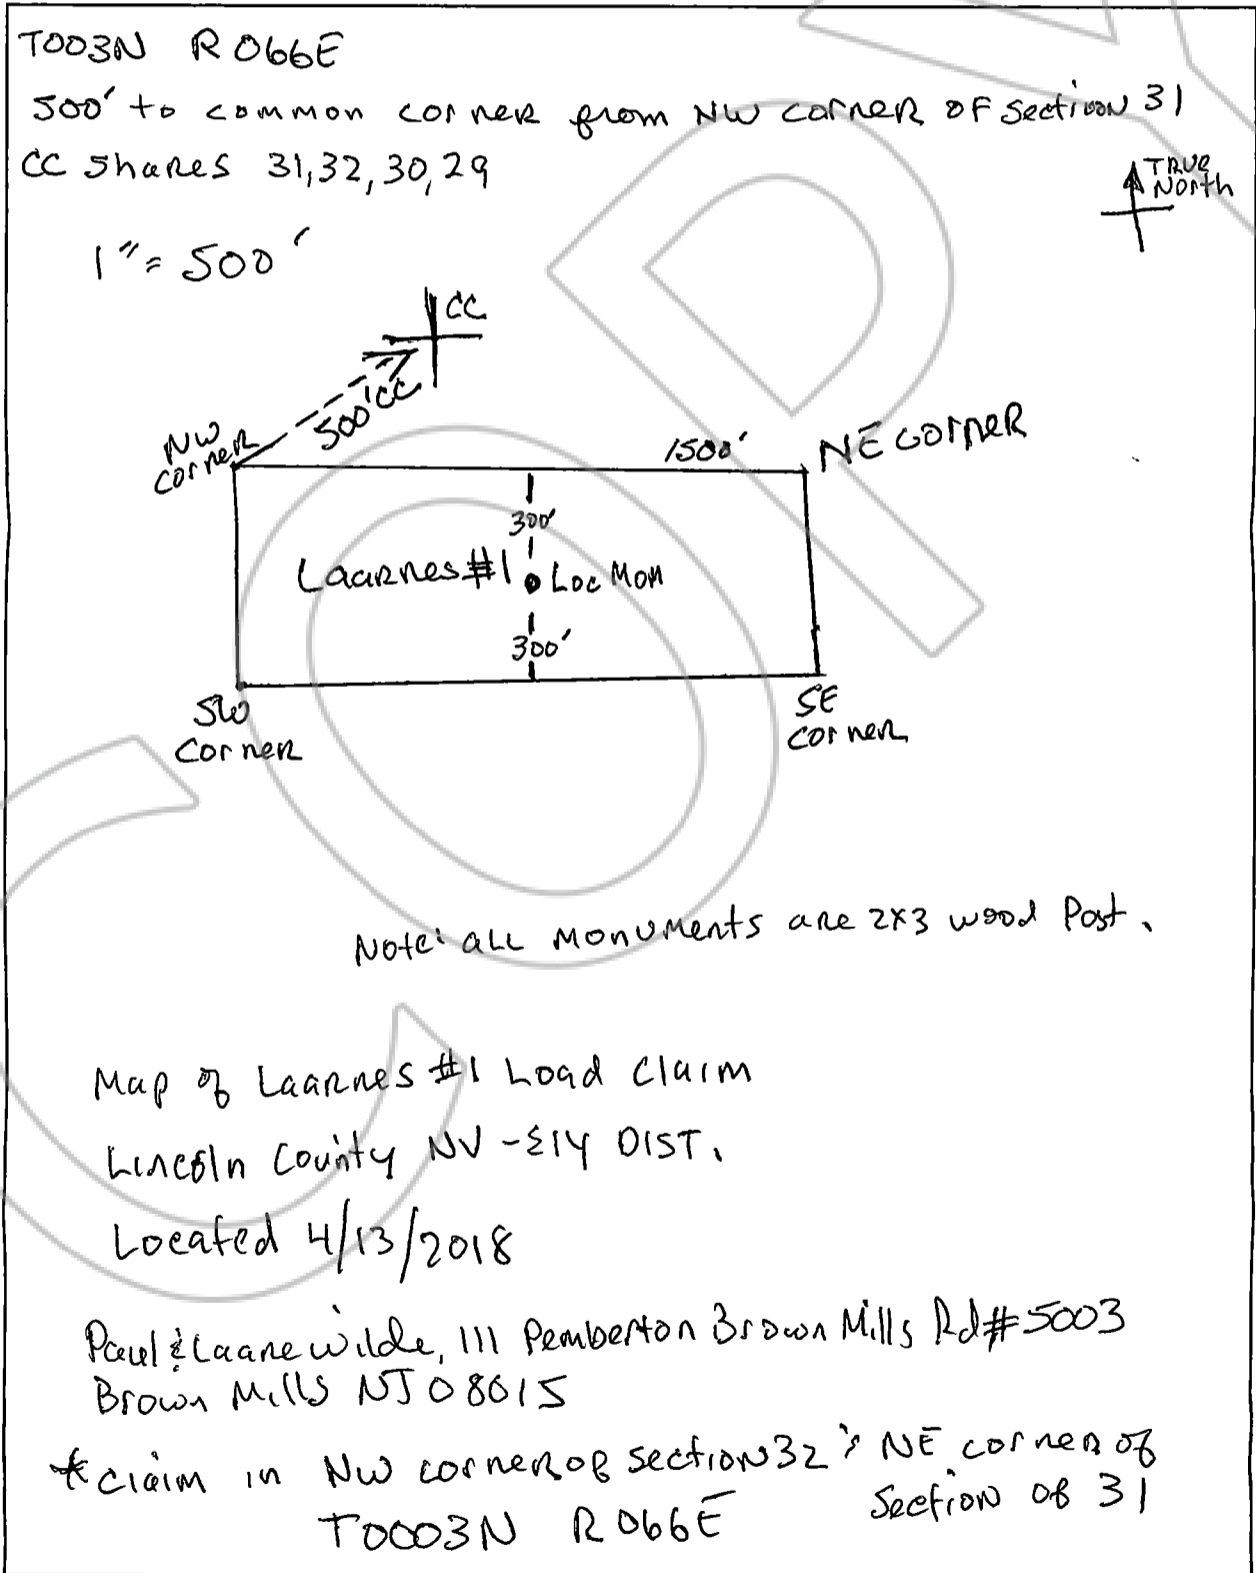 T003N R066E
500' to common corner from NW corner of Section 31
CC shares 31,32,30,29
TRUE
North
1" = 500'
CC
500' CC
NW
corner
1500'
NE corner
300'
Laarnes #1
Loc Mon
300'
SW
corner
SE
corner
Note: all monuments are 2x3 wood Post.
Map of Laarnes #1 Load Claim
Lincoln County NV - Ely DIST.
Located 4/13/2018
Paul & Laarne Wilde, 111 Pemberton Brown Mills Rd #5003
Brown Mills NJ 08015
* claim in NW corner of section 32 & NE corner of
Section of 31
T0003N R066E
COPY